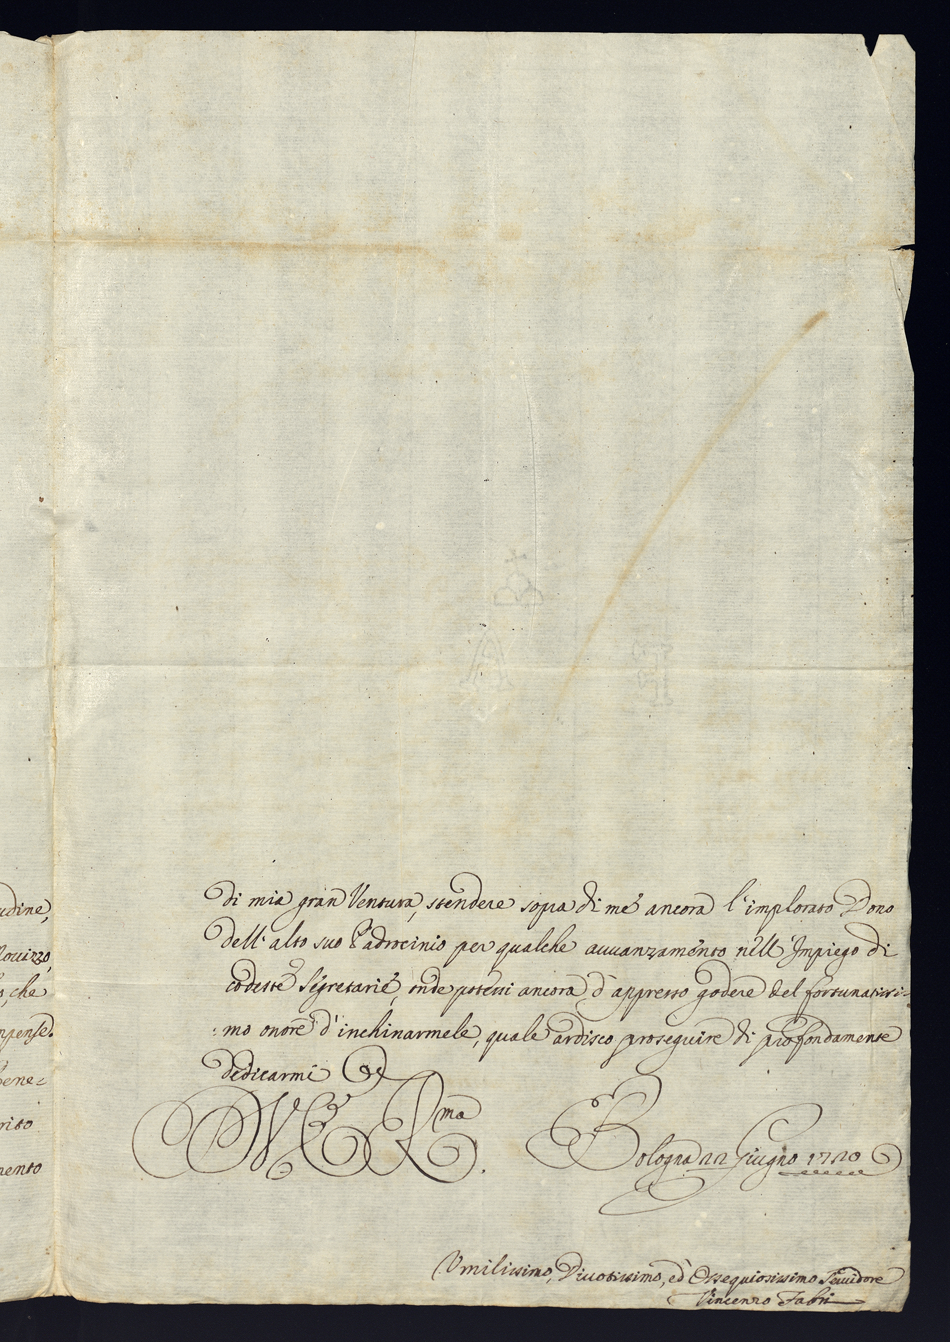 udine,
Nouizzo,
o, che
mpense.
bene=
rito
mento
di mia gran Ventura, stendere sopra di mè ancora l'implorato Dono
dell'alto suo Padrocinio per qualche auuanzamento nell'Impiego di
codeste Segretarie, onde potessi ancora d'appresso godere del fortunatissi=
:mo onore d'inchinarmele, quale ardisco proseguire di profondamente
dedicarmi
Rma
Bologna 22 Giugno 1720
Vmilissimo, Diuotissimo, ed Ossequiosissimo Seruidore
Vincenzo Fabri